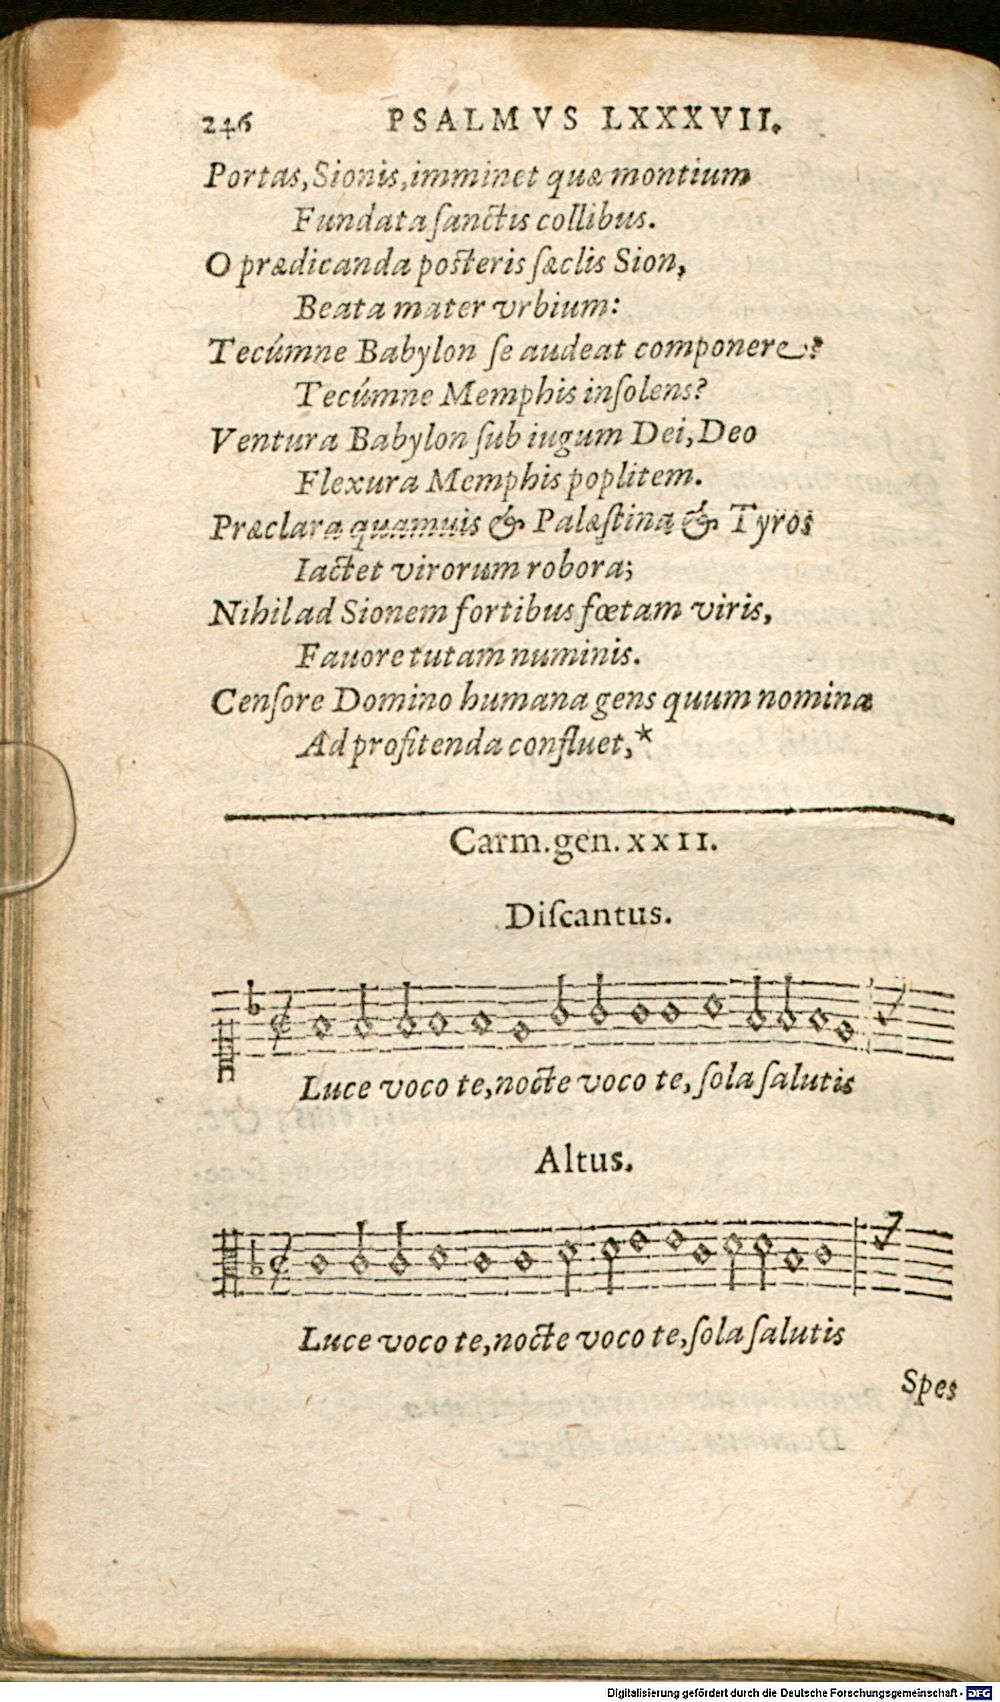 246 PSALMVS LXXXVII.
Portas, Sionis, imminet quæ montium
Fundata ſanctis collibus.
O prædicanda poſteris ſæclis Sion,
Beata mater vrbium:
Tecúmne Babylon ſe audeat componere?
Tecúmne Memphis inſolens?
Ventura Babylon ſub iugum Dei, Deo
Flexura Memphis poplitem.
Præclara quamuis & Palæſtina & Tyros
Iactet virorum robora;
Nihil ad Sionem fortibus fœtam viris,
Fauore tutam numinis.
Cenſore Domino humana gens quum nomina
Ad profitenda confluet,*
Carm. gen. XXII.
Diſcantus.
Luce voco te, nocte voco te, ſola ſalutis
Altus.
Luce voco te, nocte voco te, ſola ſalutis
Spes
Digitalisierung gefördert durch die Deutsche Forschungsgemeinschaft - DFG